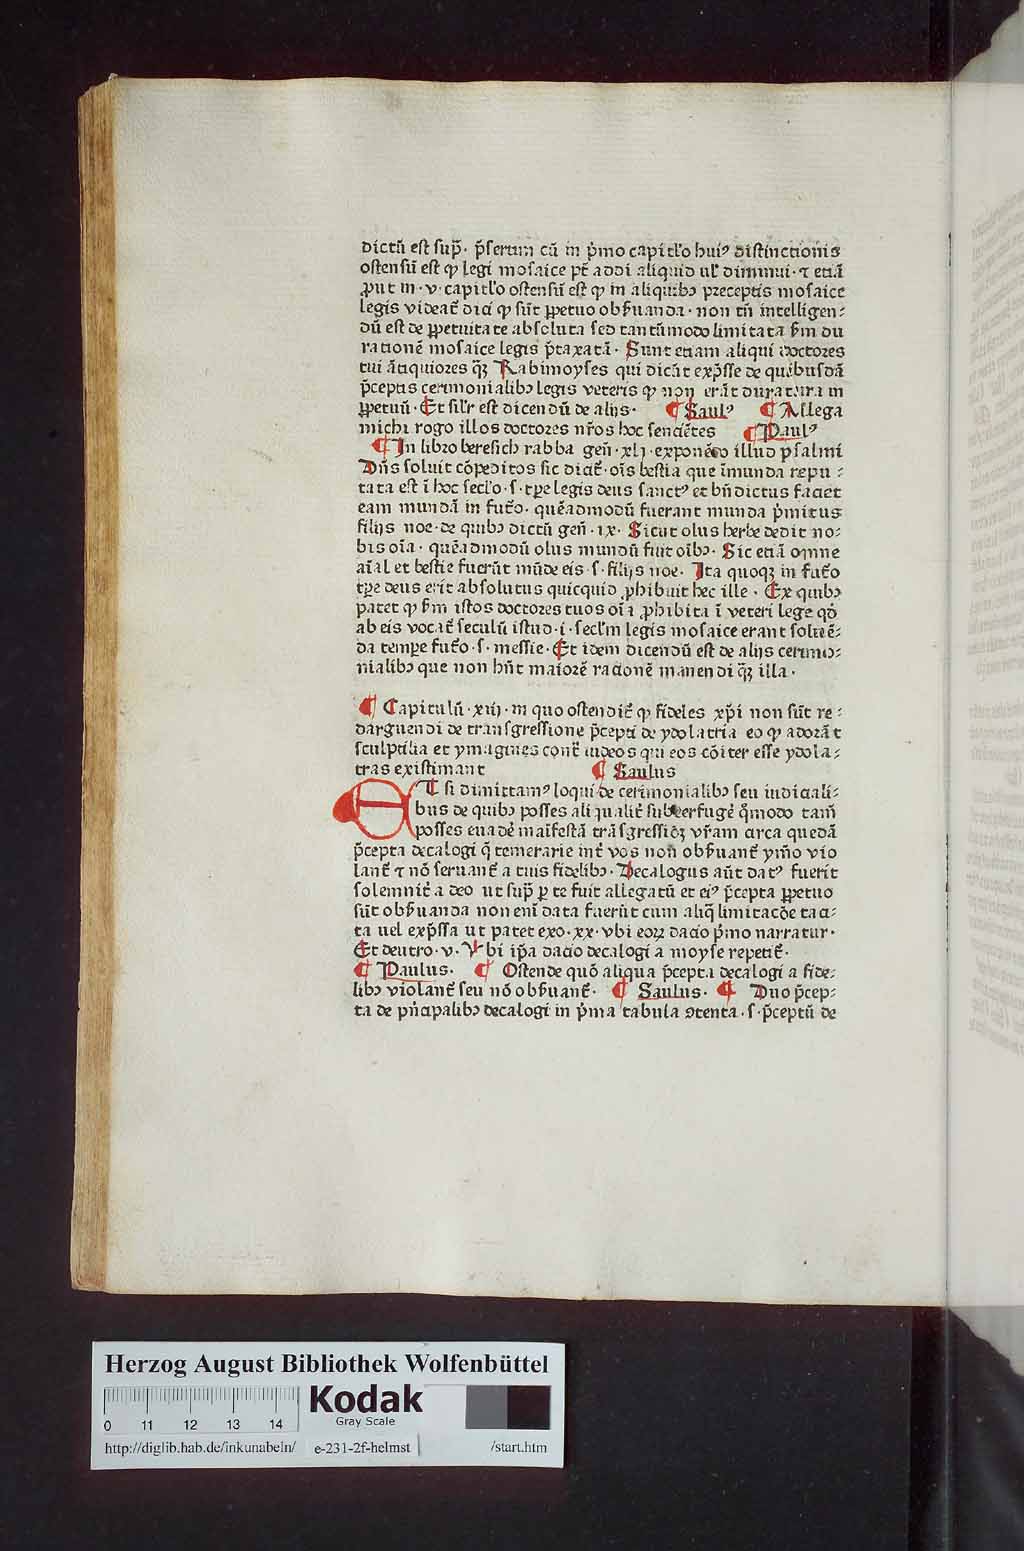 dictū est sup̄. p̄sertim cū in p̄mo capitl'o huiꝰ distinctionis
ostensū est ꝙ legi mosaice pt̄ addi aliquid ul' diminui. ⁊ etiā
ꝓut in .v. capitl'o ostensū est ꝙ in aliquibꝫ preceptis mosaice
legis videat̄ dici ꝙ sūt ꝑpetuo obẜuanda. non tn̄ intelligen⸗
dū est de ꝑpetuitate absoluta sed tantūmodo limitata ẜm du
rationē mosaice legis p̄taxatā. Sunt etiam aliqui doctores
tui ātiquiores qꝫ Rabimoyses qui dicūt exp̄sse de quibusdā
p̄ceptis cerimonialibꝫ legis veteris ꝙ non erāt duratura in
ꝑpetuū. Et sil'r est dicendū de alijs. ¶ Saulꝰ ¶ Allega
michi rogo illos doctores nr̄os hoc sencie̅tes ¶ Paulꝰ
¶ In libro beresich rabba gen̄ .xlj. expone̅do illud psalmi
Dn̄s soluit co̅peditos sic dicit̄. oi̅s bestia que i̅munda repu⸗
tata est i̅ hoc secl'o .s. tꝑe legis deus sanctꝰ et bn̄dictus faciet
eam mundā in fut̄o. que̅admodū fuerant munda p̄mitus
filijs noe. de quibꝫ dictū gen̄ .ix. Sicut olus herbe dedit no⸗
bis oi̅a. que̅admodū olus mundū fuit oi̅bꝫ. Sic etiā omne
ai̅al et bestie fuerūt mūde eis .s. filijs noe. Ita quoqꝫ in fut̄o
tꝑe deus erit absolutus quicquid ꝓhibuit hec ille. Ex quibꝫ
patet ꝙ ẜm istos doctores tuos oi̅a ꝓhibita i̅ veteri lege qd̄
ab eis vocat̄ seculū istud .i. secl'm legis mosaice erant solue̅⸗
da tempe fut̄o .s. messie. Et idem dicendū est de alijs cerimo⸗
nialibꝫ que non hn̄t maiore̅ racione̅ manendi qꝫ illa.
¶ Capitulū .xiij. in quo ostendit̄ ꝙ fideles xp̄i non sūt re⸗
darguendi de transgressione p̄cepti de ydolatria eo ꝙ adorāt
sculptilia et ymagines cont̄ iudeos qui eos cōiter esse ydola⸗
tras existimant ¶ Saulus
ET si dimittamꝰ loqui de cerimonialibꝫ seu iudiciali⸗
bus de quibꝫ posses aliqualit̄ subterfuge̅ qm̄odo tam̄
posses euade̅ mai̅festā trāsgressio̅ꝫ vr̄am circa quedā
p̄cepta decalogi q̄ temerarie int̄ vos non̄ obẜuant̄ ym̄o vio
lant̄ ⁊ nō seruant̄ a tuis fidelibꝫ. Decalogus aūt datꝰ fuerit
solemnit̄ a deo ut sup̄ ꝑ te fuit allegatū et eiꝰ p̄cepta ꝑpetuo
sūt obẜuanda non eni̅ data fuerūt cum aliq̄ limitacōe taci⸗
ta uel exp̄ssa ut patet exo .xx. vbi eoꝝ dacio p̄mo narratur.
Et deutro .v. Vbi ip̄a dacio decalogi a moyse repetit̄.
¶ Paulus. ¶ Ostende quō aliqua p̄cepta decalogi a fide⸗
libꝫ violant̄ seu nō obẜuant̄. ¶ Saulus. ¶ Duo p̄cep⸗
ta de pn̄cipalibꝫ decalogi in p̄ma tabula ꝯtenta .s. p̄ceptū de
Herzog August Bibliothek Wolfenbüttel
Kodak
Gray Scale
0 11 12 13 14
http://diglib.hab.de/inkunabeln/ e-231-2f-helmst /start.htm